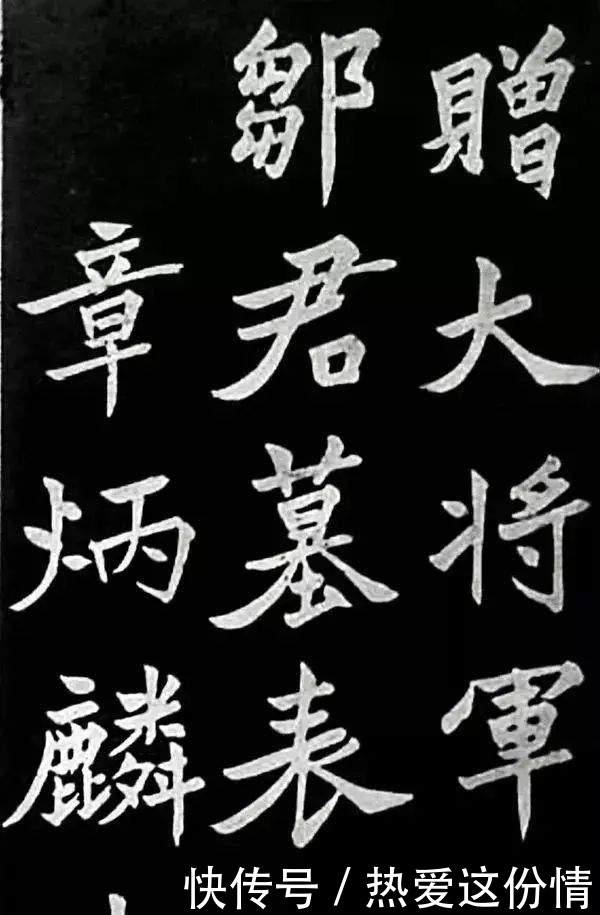 贈大將軍
鄒君墓表
章炳麟
快传号 / 热爱这份情